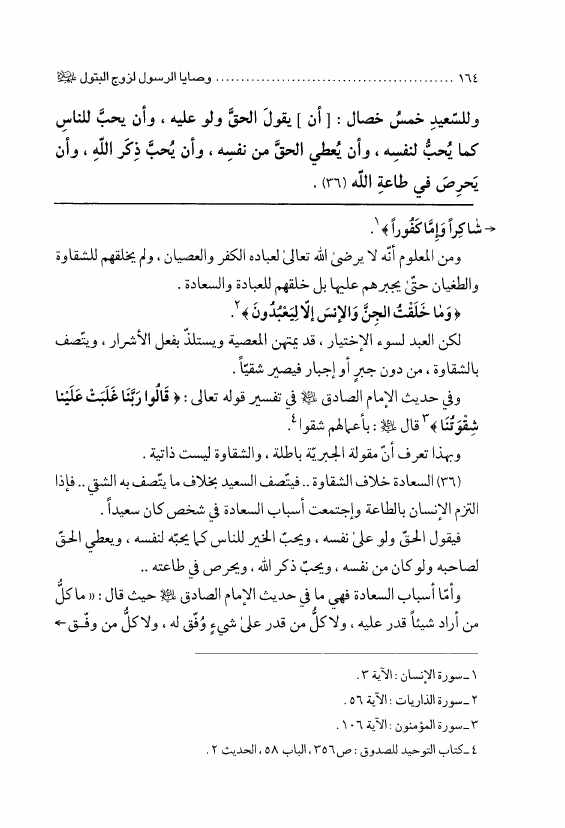 ١٦٤ ............................................... وصايا الرسول لزوج البتول ﷺ
وللسّعيدِ خمسُ خصال : [ أن ] يقولَ الحقَّ ولو عليه ، وأن يحبَّ للناسِ
كما يُحبُّ لنفسِه ، وأن يُعطي الحقَّ من نفسِه ، وأن يُحبَّ ذِكرَ اللّهِ ، وأن
يَحرِصَ في طاعةِ اللّه (٣٦) .
← شٰاكِراً وَإِمَّا كَفُوراً ﴾١.
ومن المعلوم أنّه لا يرضىٰ الله تعالىٰ لعباده الكفر والعصيان ، ولم يخلقهم للشقاوة
والطغيان حتّىٰ يجبرهم عليها بل خلقهم للعبادة والسعادة .
﴿ وَمٰا خَلَقْتُ الجِنَّ وَالإنسَ إلّا لِيَعْبُدُونَ ﴾٢.
لكن العبد لسوء الإختيار ، قد يمتهن المعصية ويستلذّ بفعل الأشرار ، ويتّصف
بالشقاوة ، من دون جبرٍ أو إجبار فيصير شقيّاً .
وفي حديث الإمام الصادق ﷺ في تفسير قوله تعالى : ﴿ قَالُوا رَبَّنَا غَلَبَتْ عَلَيْنا
شِقْوَتُنَا ﴾٣ قال ﷺ : بأعمالهم شقوا٤.
وبهذا تعرف أنّ مقولة الجبريّة باطلة ، والشقاوة ليست ذاتية .
(٣٦) السعادة خلاف الشقاوة .. فيتّصف السعيد بخلاف ما يتّصف به الشقي .. فإذا
التزم الإنسان بالطاعة وإجتمعت أسباب السعادة في شخص كان سعيداً .
فيقول الحقّ ولو علىٰ نفسه ، ويحبّ الخير للناس كما يحبّه لنفسه ، ويعطي الحقّ
لصاحبه ولو كان من نفسه ، ويحبّ ذكر الله ، ويحرص في طاعته ..
وأمّا أسباب السعادة فهي ما في حديث الإمام الصادق ﷺ حيث قال : « ما كلُّ
من أراد شيئاً قدر عليه ، ولا كلُّ من قدر علىٰ شيءٍ وُفّق له ، ولا كلُّ من وفّـق ←
١ ـ سورة الإنسان : الآية ٣ .
٢ ـ سورة الذاريات : الآية ٥٦ .
٣ ـ سورة المؤمنون : الآية ١٠٦ .
٤ ـ كتاب التوحيد للصدوق : ص ٣٥٦ ، الباب ٥٨ ، الحديث ٢ .